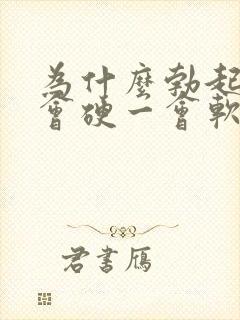 為什麼勃起
會硬一會軟
君書雁